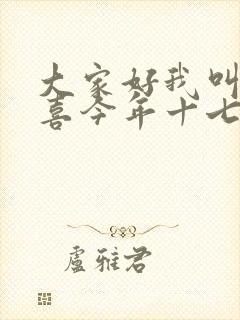 大家好我叫
喜今年十七
盧雅君